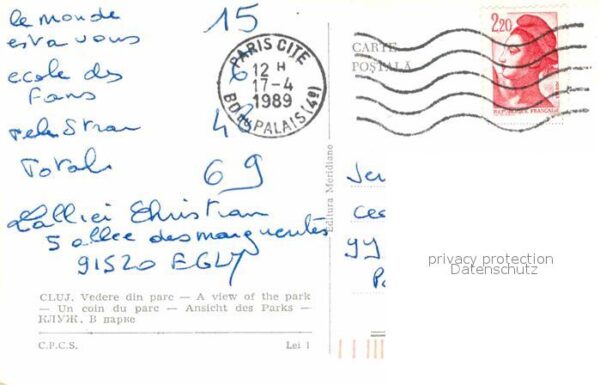 le monde 15
est a vous
ecole des 6
Fans
48
Total 69
Christian
5 allee des marguerites
91520 EGLY
CLUJ. Vedere din parc — A view of the park
— Un coin du parc — Ansicht des Parks —
КЛУЖ. В парке
C.P.C.S. Lei 1
Editura Meridiane
PARIS CITE
12 H
17-4
1989
BD du PALAIS (4e)
CARTE
POȘTALĂ
2,20
REPUBLIQUE FRANÇAISE
privacy protection
Datenschutz